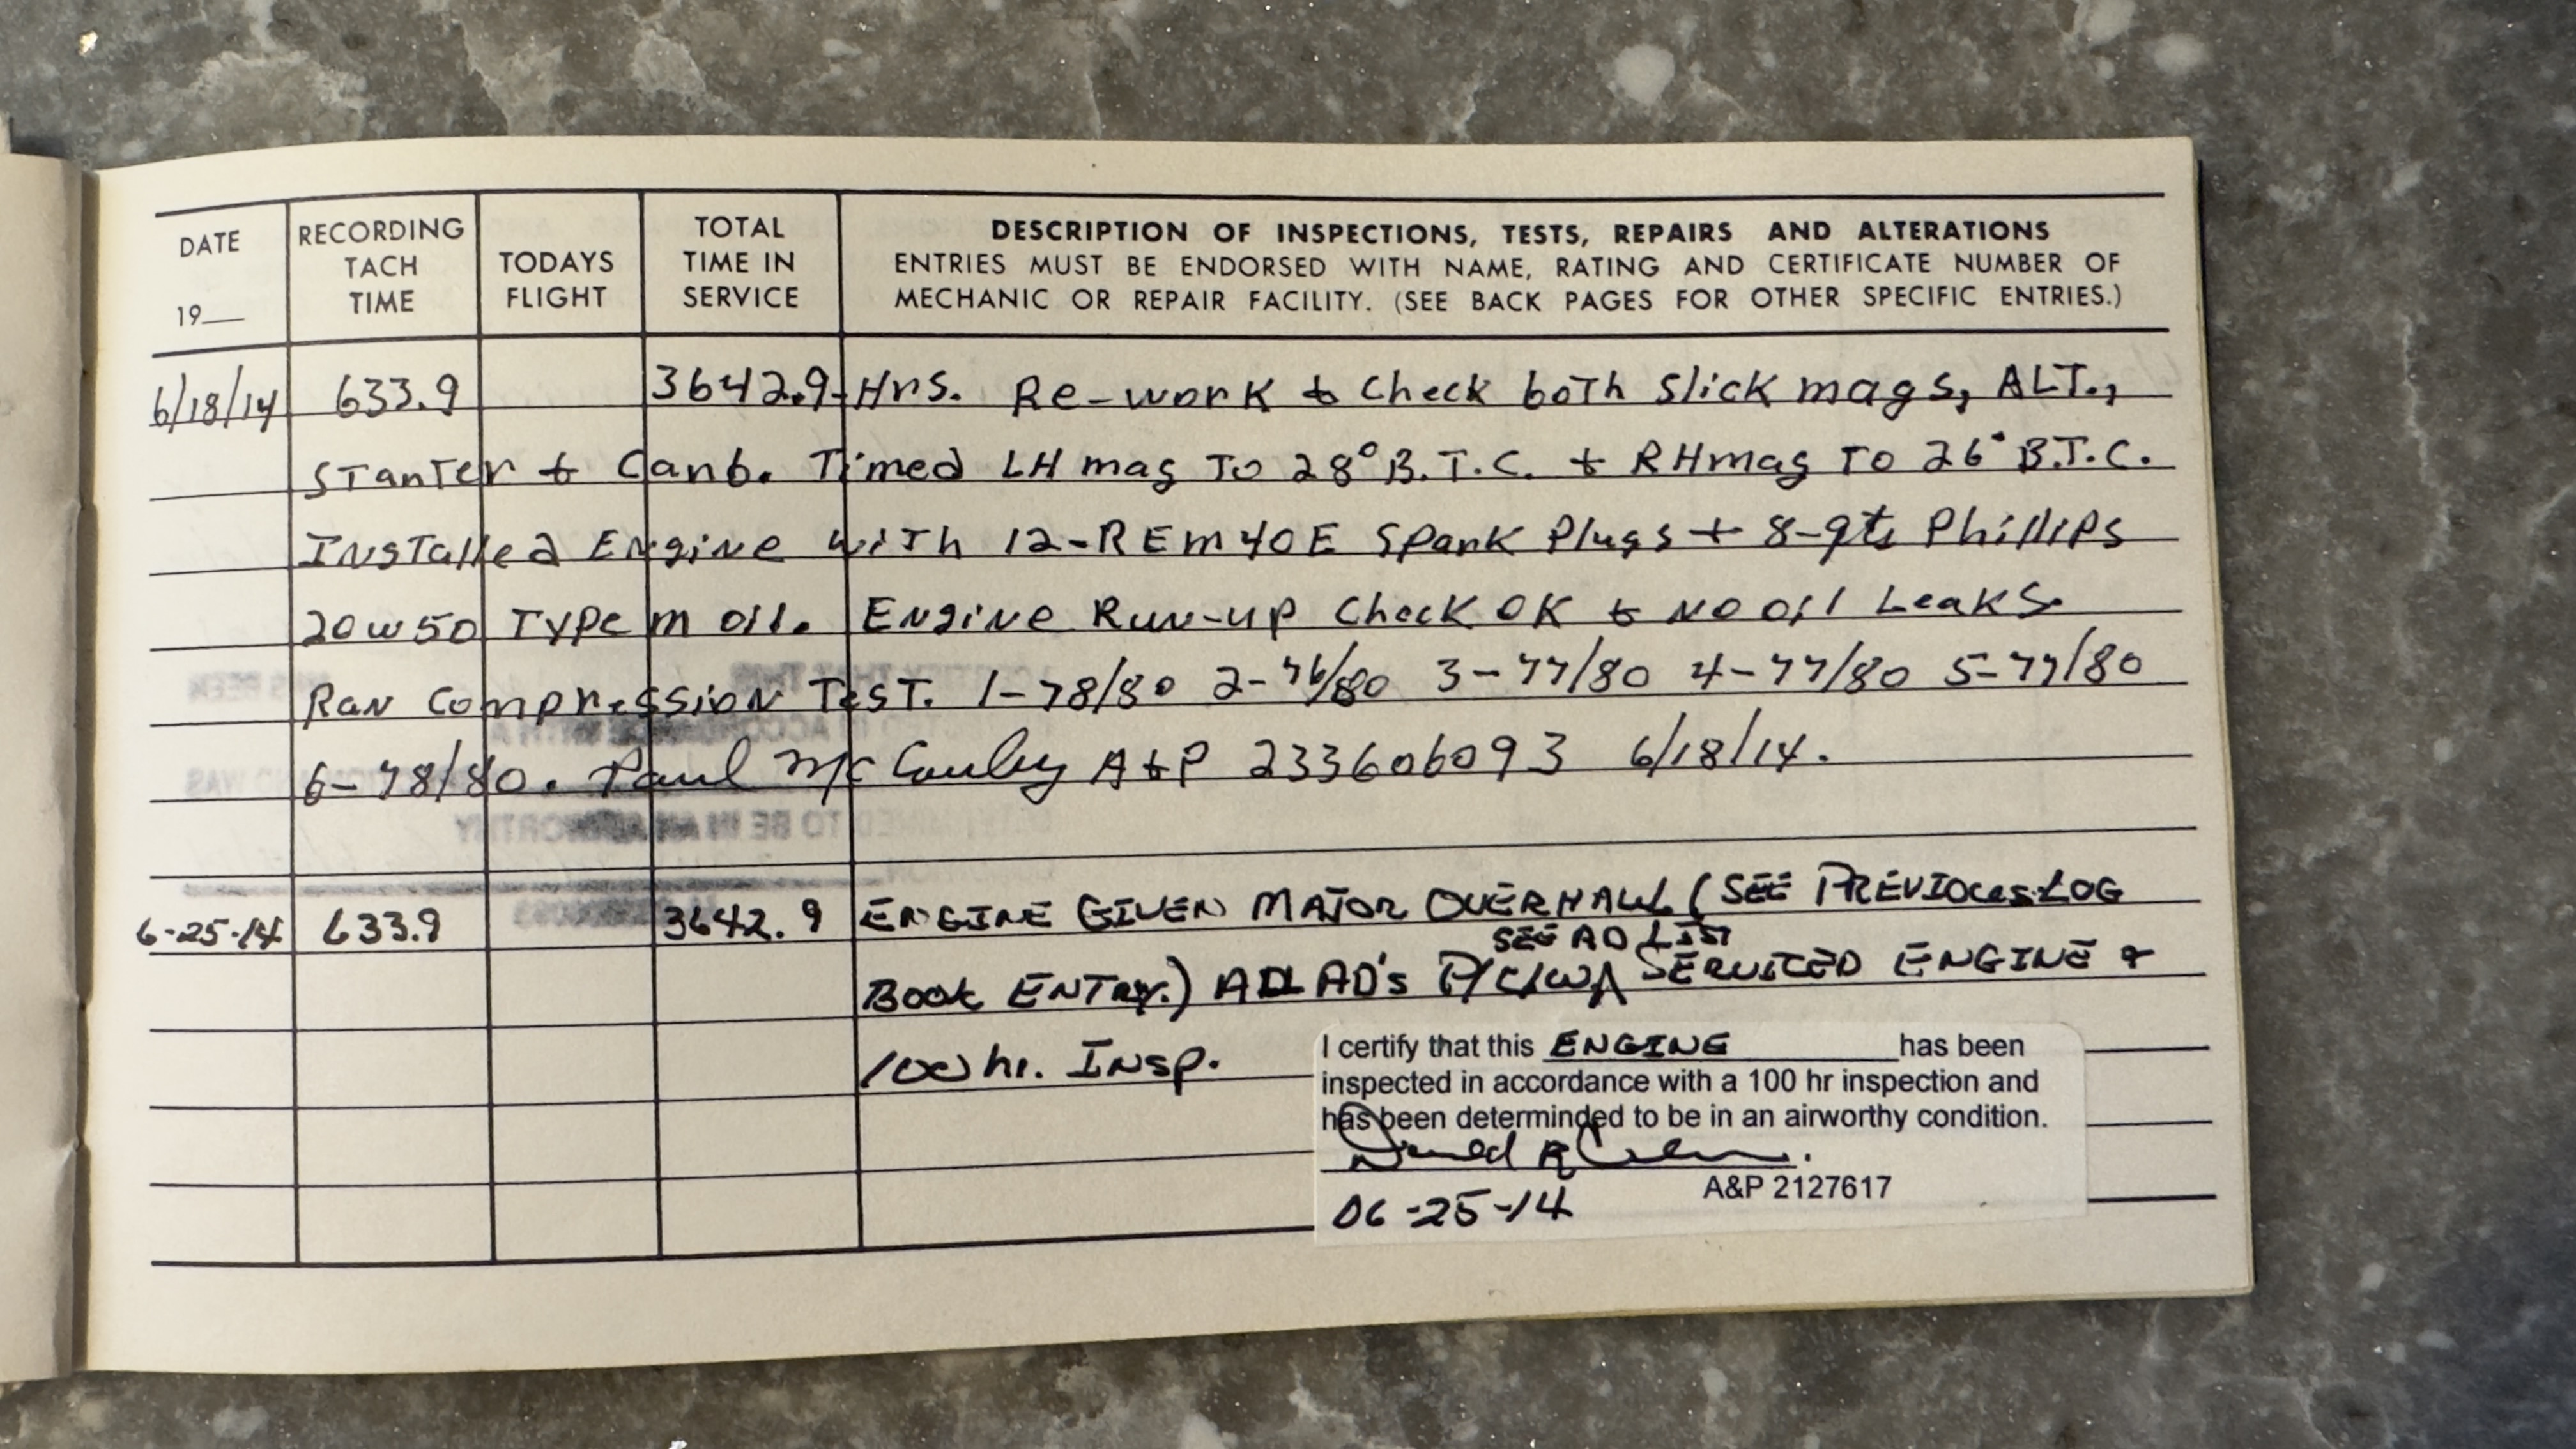 DATE
19__
RECORDING
TACH
TIME
TODAYS
FLIGHT
TOTAL
TIME IN
SERVICE
DESCRIPTION OF INSPECTIONS, TESTS, REPAIRS AND ALTERATIONS
ENTRIES MUST BE ENDORSED WITH NAME, RATING AND CERTIFICATE NUMBER OF
MECHANIC OR REPAIR FACILITY. (SEE BACK PAGES FOR OTHER SPECIFIC ENTRIES.)
6/18/14 633.9 3642.9 Hrs. Re-work & Check both Slick mags, ALT.,
Starter & Carb. Timed LH mag To 28° B.T.C. + RH mag To 26° B.T.C.
Installed Engine with 12-REM40E Spark Plugs + 8-qts Phillips
20w50 Type m oil. Engine Run-up Check OK & No oil Leaks.
Ran Compression Test. 1-78/80 2-76/80 3-77/80 4-77/80 5-77/80
6-78/80. Paul McCauley A&P 233606093 6/18/14.
6-25-14 633.9 3642.9 ENGINE GIVEN MAJOR OVERHAUL (SEE PREVIOUS LOG
SEE AD LIST
BOOK ENTRY.) ALL AD's P/C/W SERVICED ENGINE &
100 hr. INSP.
I certify that this ENGINE has been
inspected in accordance with a 100 hr inspection and
has been determinded to be in an airworthy condition.
A&P 2127617
06-25-14